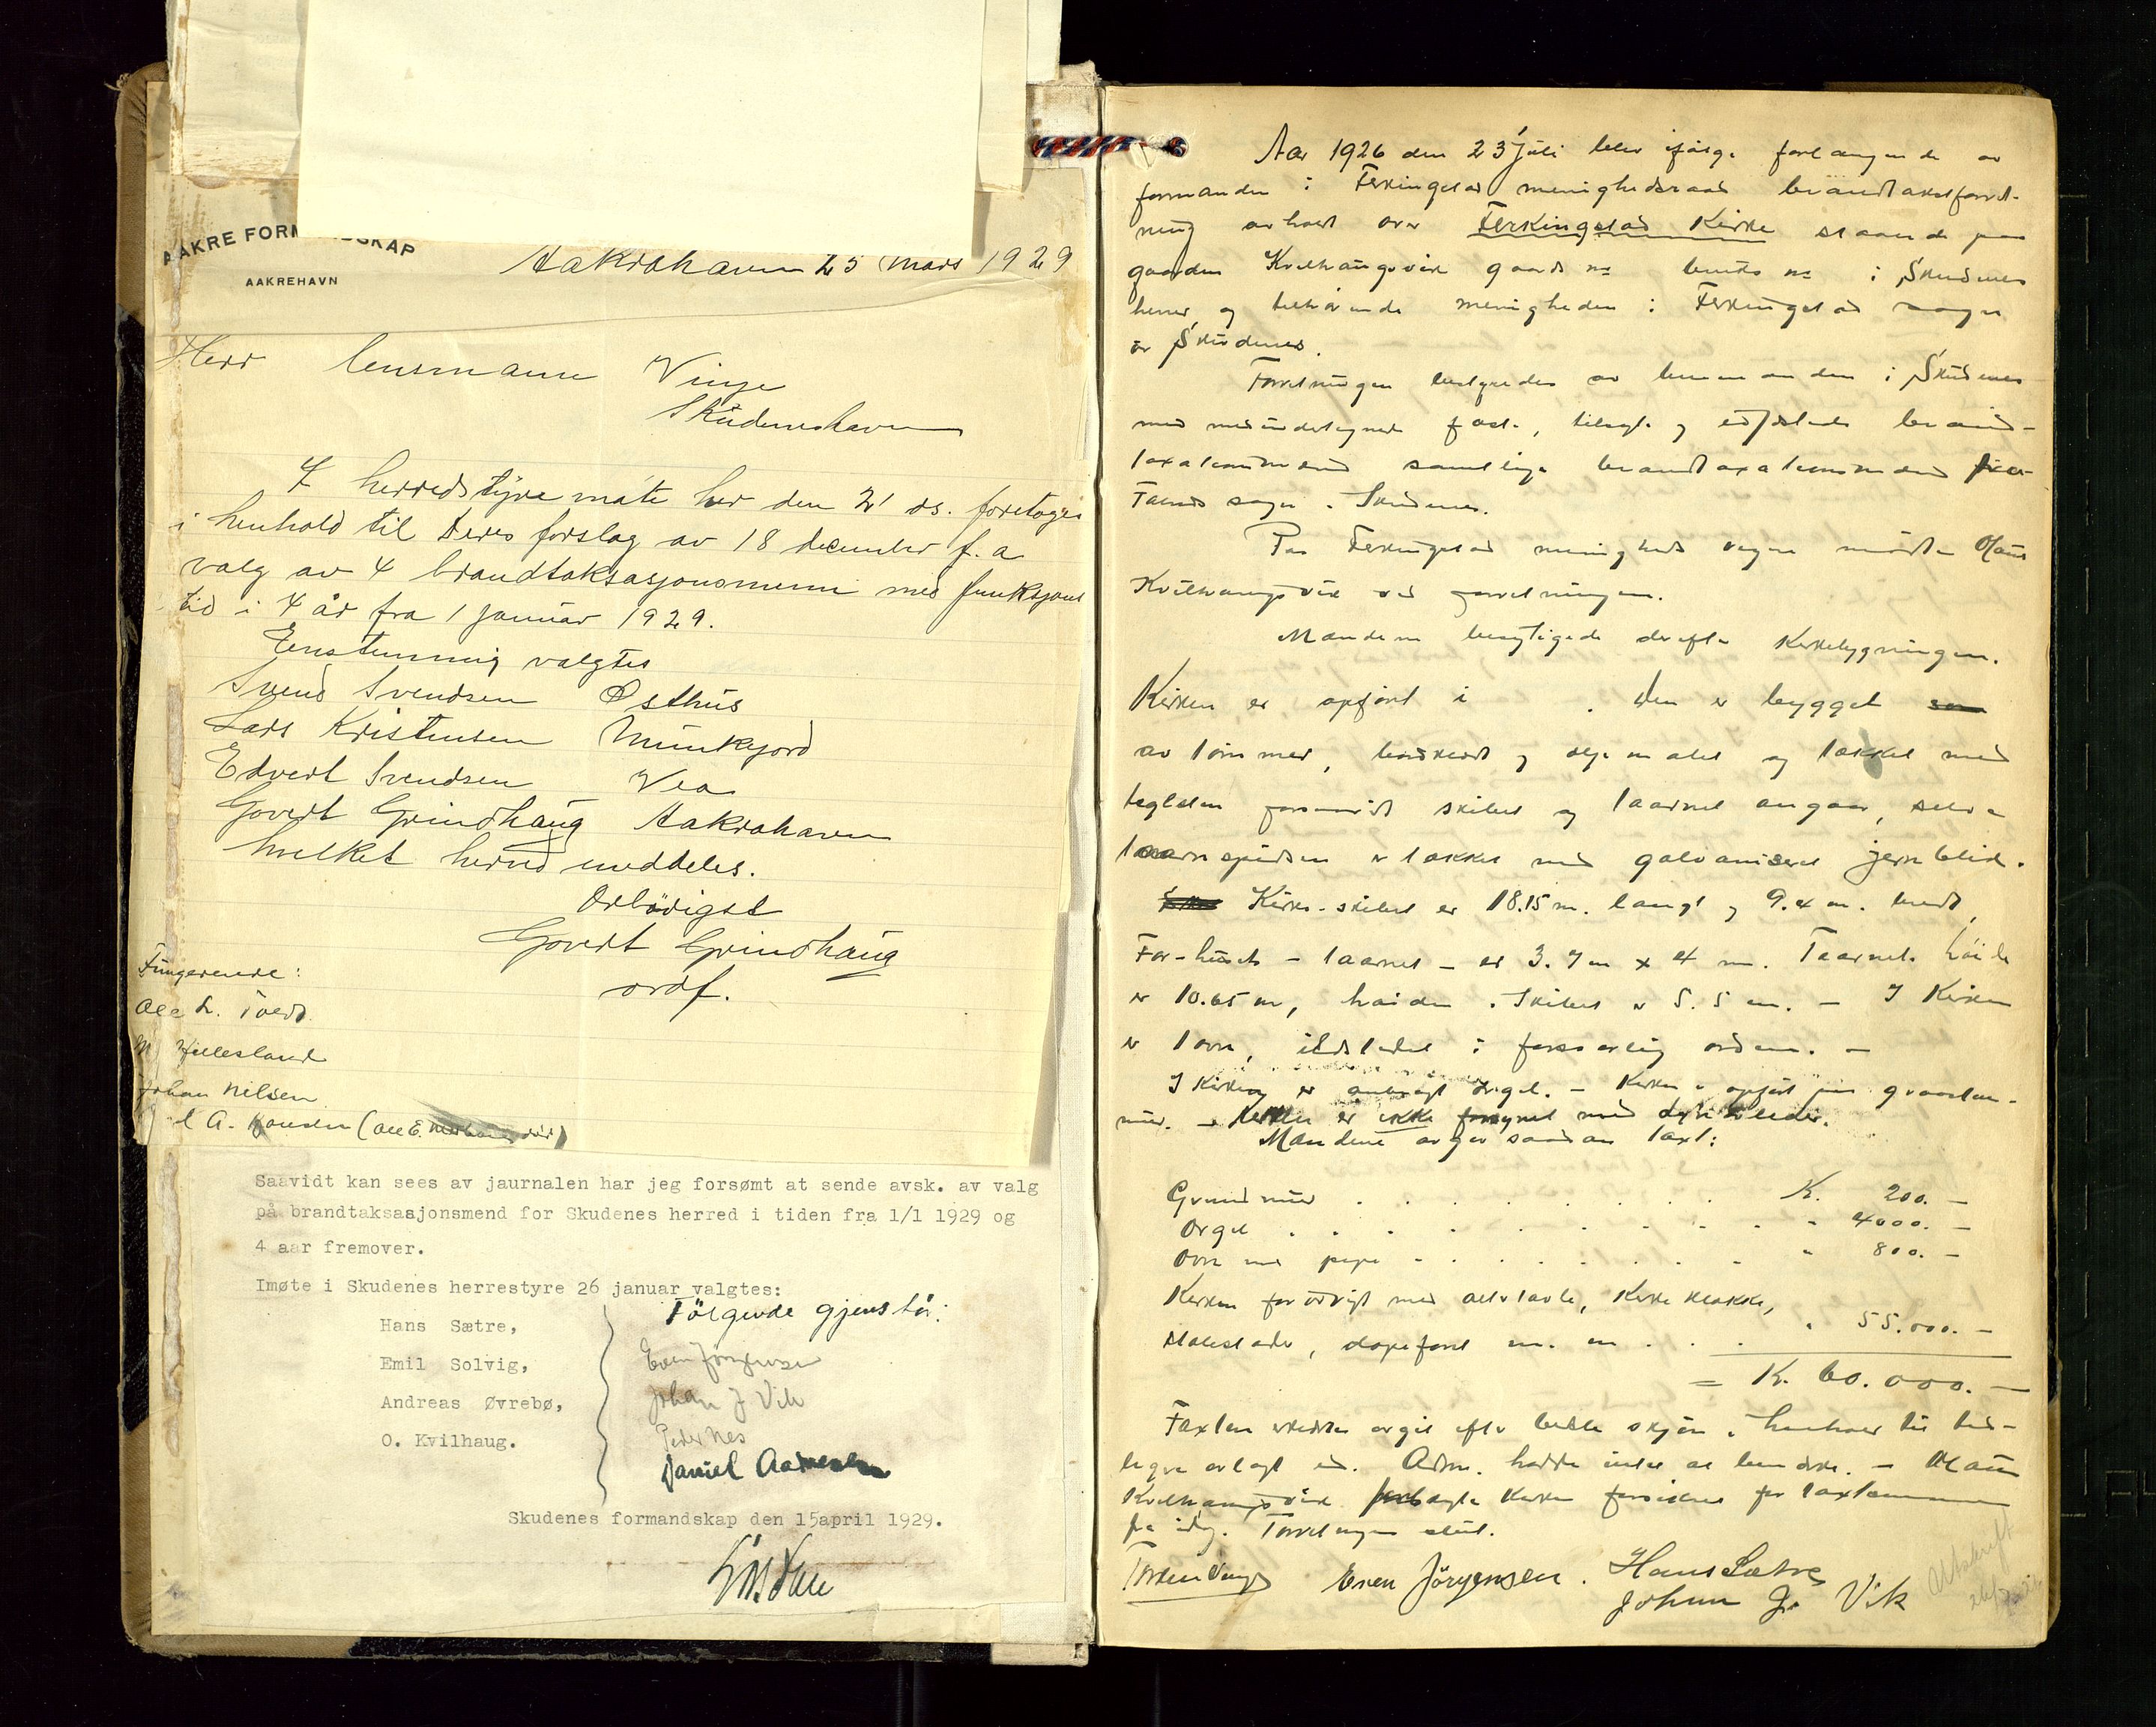 AAKRE FORM    DSKAP
AAKREHAVN
Aakrahavn 25 mars 1929
Herr lensmann Vinje
Skudeneshavn
I herredstyremøte her den 21 ds. foretoges
i henhold til Deres forslag av 18 december f.a
valg av 4 brandtaksasjonsmenn med funksjons
tid i 4 år fra 1 januar 1929.
Enstemmig valgtes
Svend Svendsen Østhus
Lars Kristensen Munkejord
Edvert Svendsen Vea
Govert Grindhaug Aakrahavn
hvilket herved meddeles.
Ærbødigst
Govert Grindhaug
ordf.
Fungerende:
Ole L. Tvedt
Hillesland
Johan Nilsen
A. Hansen (Ole E.
Saavidt kan sees av jaurnalen har jeg forsømt at sende avsk. av valg
på brandtaksasjonsmend for Skudenes herred i tiden fra 1/1 1929 og
4 aar fremover.
Imøte i Skudenes herrestyre 26 januar valgtes:
Følgende gjenstår:
Hans Sætre,
Emil Solvig,
Andreas Øvrebø,
O. Kvilhaug.
Even Jørgensen
Johan J Vik
Peder Nes
Daniel
Skudenes formandskap den 15april 1929.
Aar 1926 den 23 juli blev ifølge forlangende av
formanden i Ferkingstad menighedsraad brandtakstforret-
ning avholdt over Ferkingstad Kirke staaende paa
gaarden Kvilhaugsvik gaards no bruks no i Skudenes
herred og tilhørende menigheden i Ferkingstad sogn
av Skudenes.
Forretningen bestyredes av lensmanden i Skudenes
med medundertegnede faste, tilsagte og edfæstede brand-
taxationsmænd samtlige brandtaxationsmænd
sogn i Skudenes.
For Ferkingstad menigheds vegne mødte Olaus
Kvilhaugsvik ved forretningen.
Mændene besigtigede derefter Kirkebygningen.
Kirken er opført i . Den er bygget som
av tømmer, bordklædt og oljemalet og tækket med
teglsten forsaavidt skibet og taarnet angaar, selve
taarnspidsen er tækket med galvaniseret jernblik.
Kirke-skibet er 18.15 m. langt og 9.4 m. bredt,
For-huset - taarnet - er 3.7 m x 4 m. Taarnets høide
er 10.65 m, høiden i Skibet er 5.5 m. - I Kirken
er 1 ovn, ildstedet i forsvarlig orden. -
I Kirken er anbragt orgel. - Kirken er opført paa graasten-
mur. - Kirken er ikke forsynet med lynavleder.
Mændene avgav saadan taxt:
Grundmur . . . . . . . . K. 200. -
Orgel . . . . . . . . . " 4000. -
Ovn med pipe . . . . . . . " 800. -
Kirken forøvrigt med altertavle, Kirkeklokke,
stolestader, døpefont m. m. . . . " 55.000. -
= K. 60.000. -
Taxten erklædtes avgit efter bedste skjøn i henhold til tid-
ligere avlagt ed. Adm. hadde intet at bemerke. - Olaus
Kvilhaugsvik forlangte Kirken forsikret for taxtsummen
fra idag. Forretningen slut.
Torkel Vinje Even Jørgensen. Hans Sætre
Johan J. Vik
Utskrift